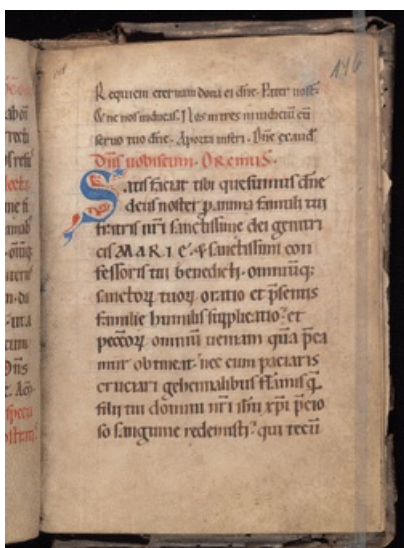 Requiem eternam dona ei dñe. Pater nost̃.
Et ne nos inducas. Non intres in iudiciũ cũ
seruo tuo dñe. A porta inferi. Dñe exaudi
Dñs uobiscum. OREMUS.
Satisfaciat tibi quesumus dñe
deus noster p anima famuli tui
fratris nr̃i sanctissime dei genitri
cis MARIE. & sanctissimi con
fessoris tui benedicti. omniũq;
sanctoꝝ tuoꝝ oratio et p̃sentis
familie humilis supplicatio. et
peccõꝝ omniũ ueniam quã p̃ca
mur obtineat. nec eum paciaris
cruciari gehennalibus flãmis q̃
filii tui domini nr̃i ih̃u xp̃i p̃cio
so sanguine redemisti. qui tecũ